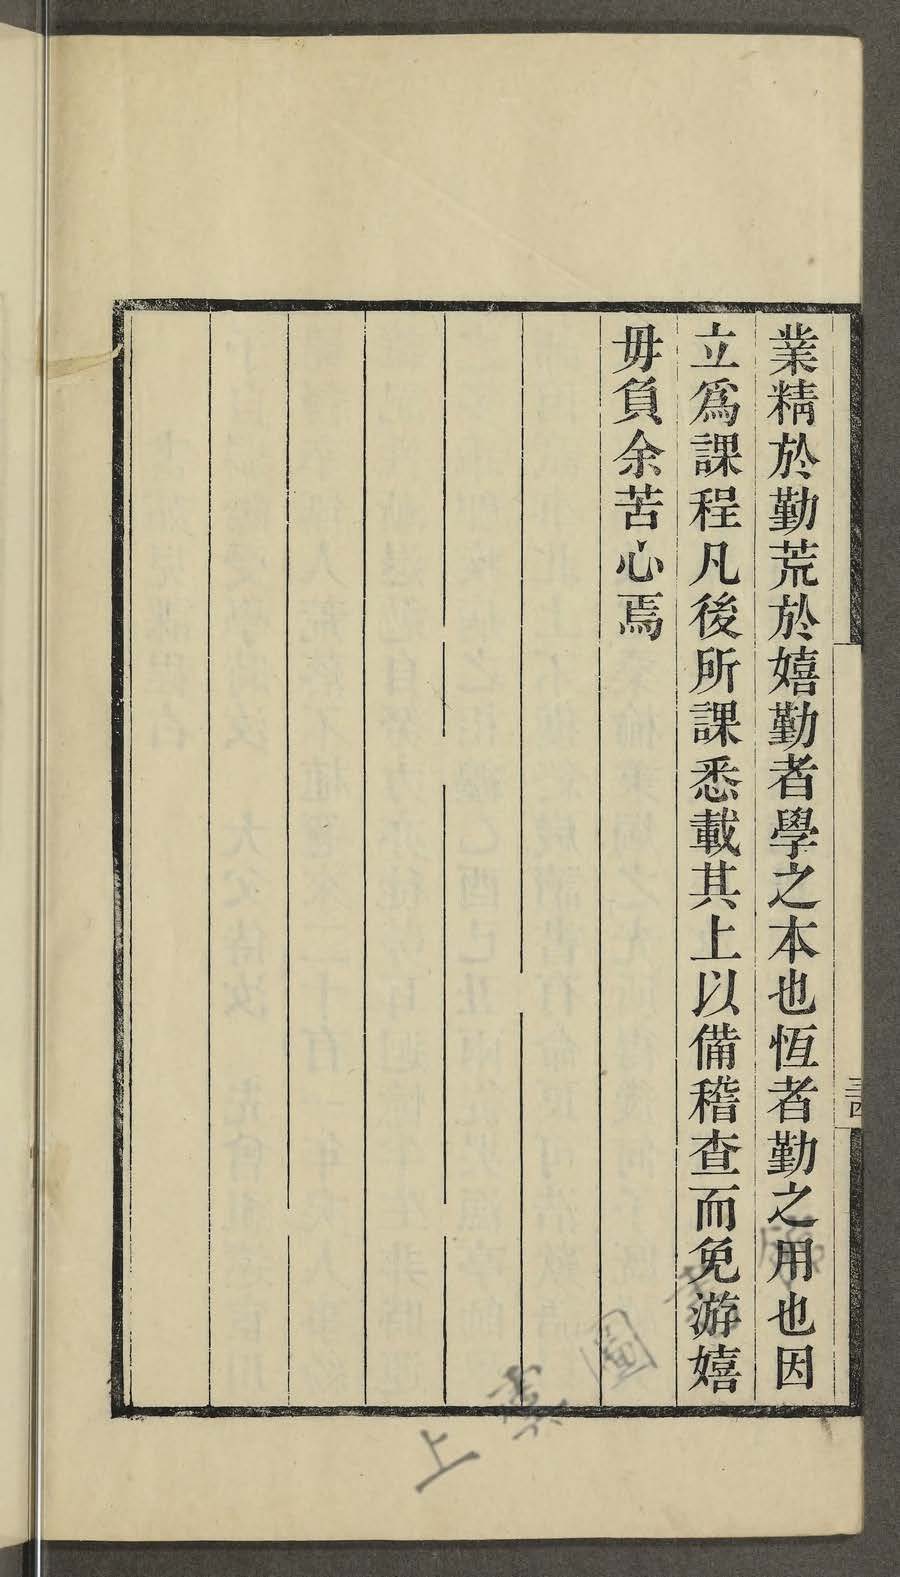 業精於勤荒於嬉勤者學之本也恆者勤之用也因
立爲課程凡後所課悉載其上以備稽查而免游嬉
毋負余苦心焉
三四